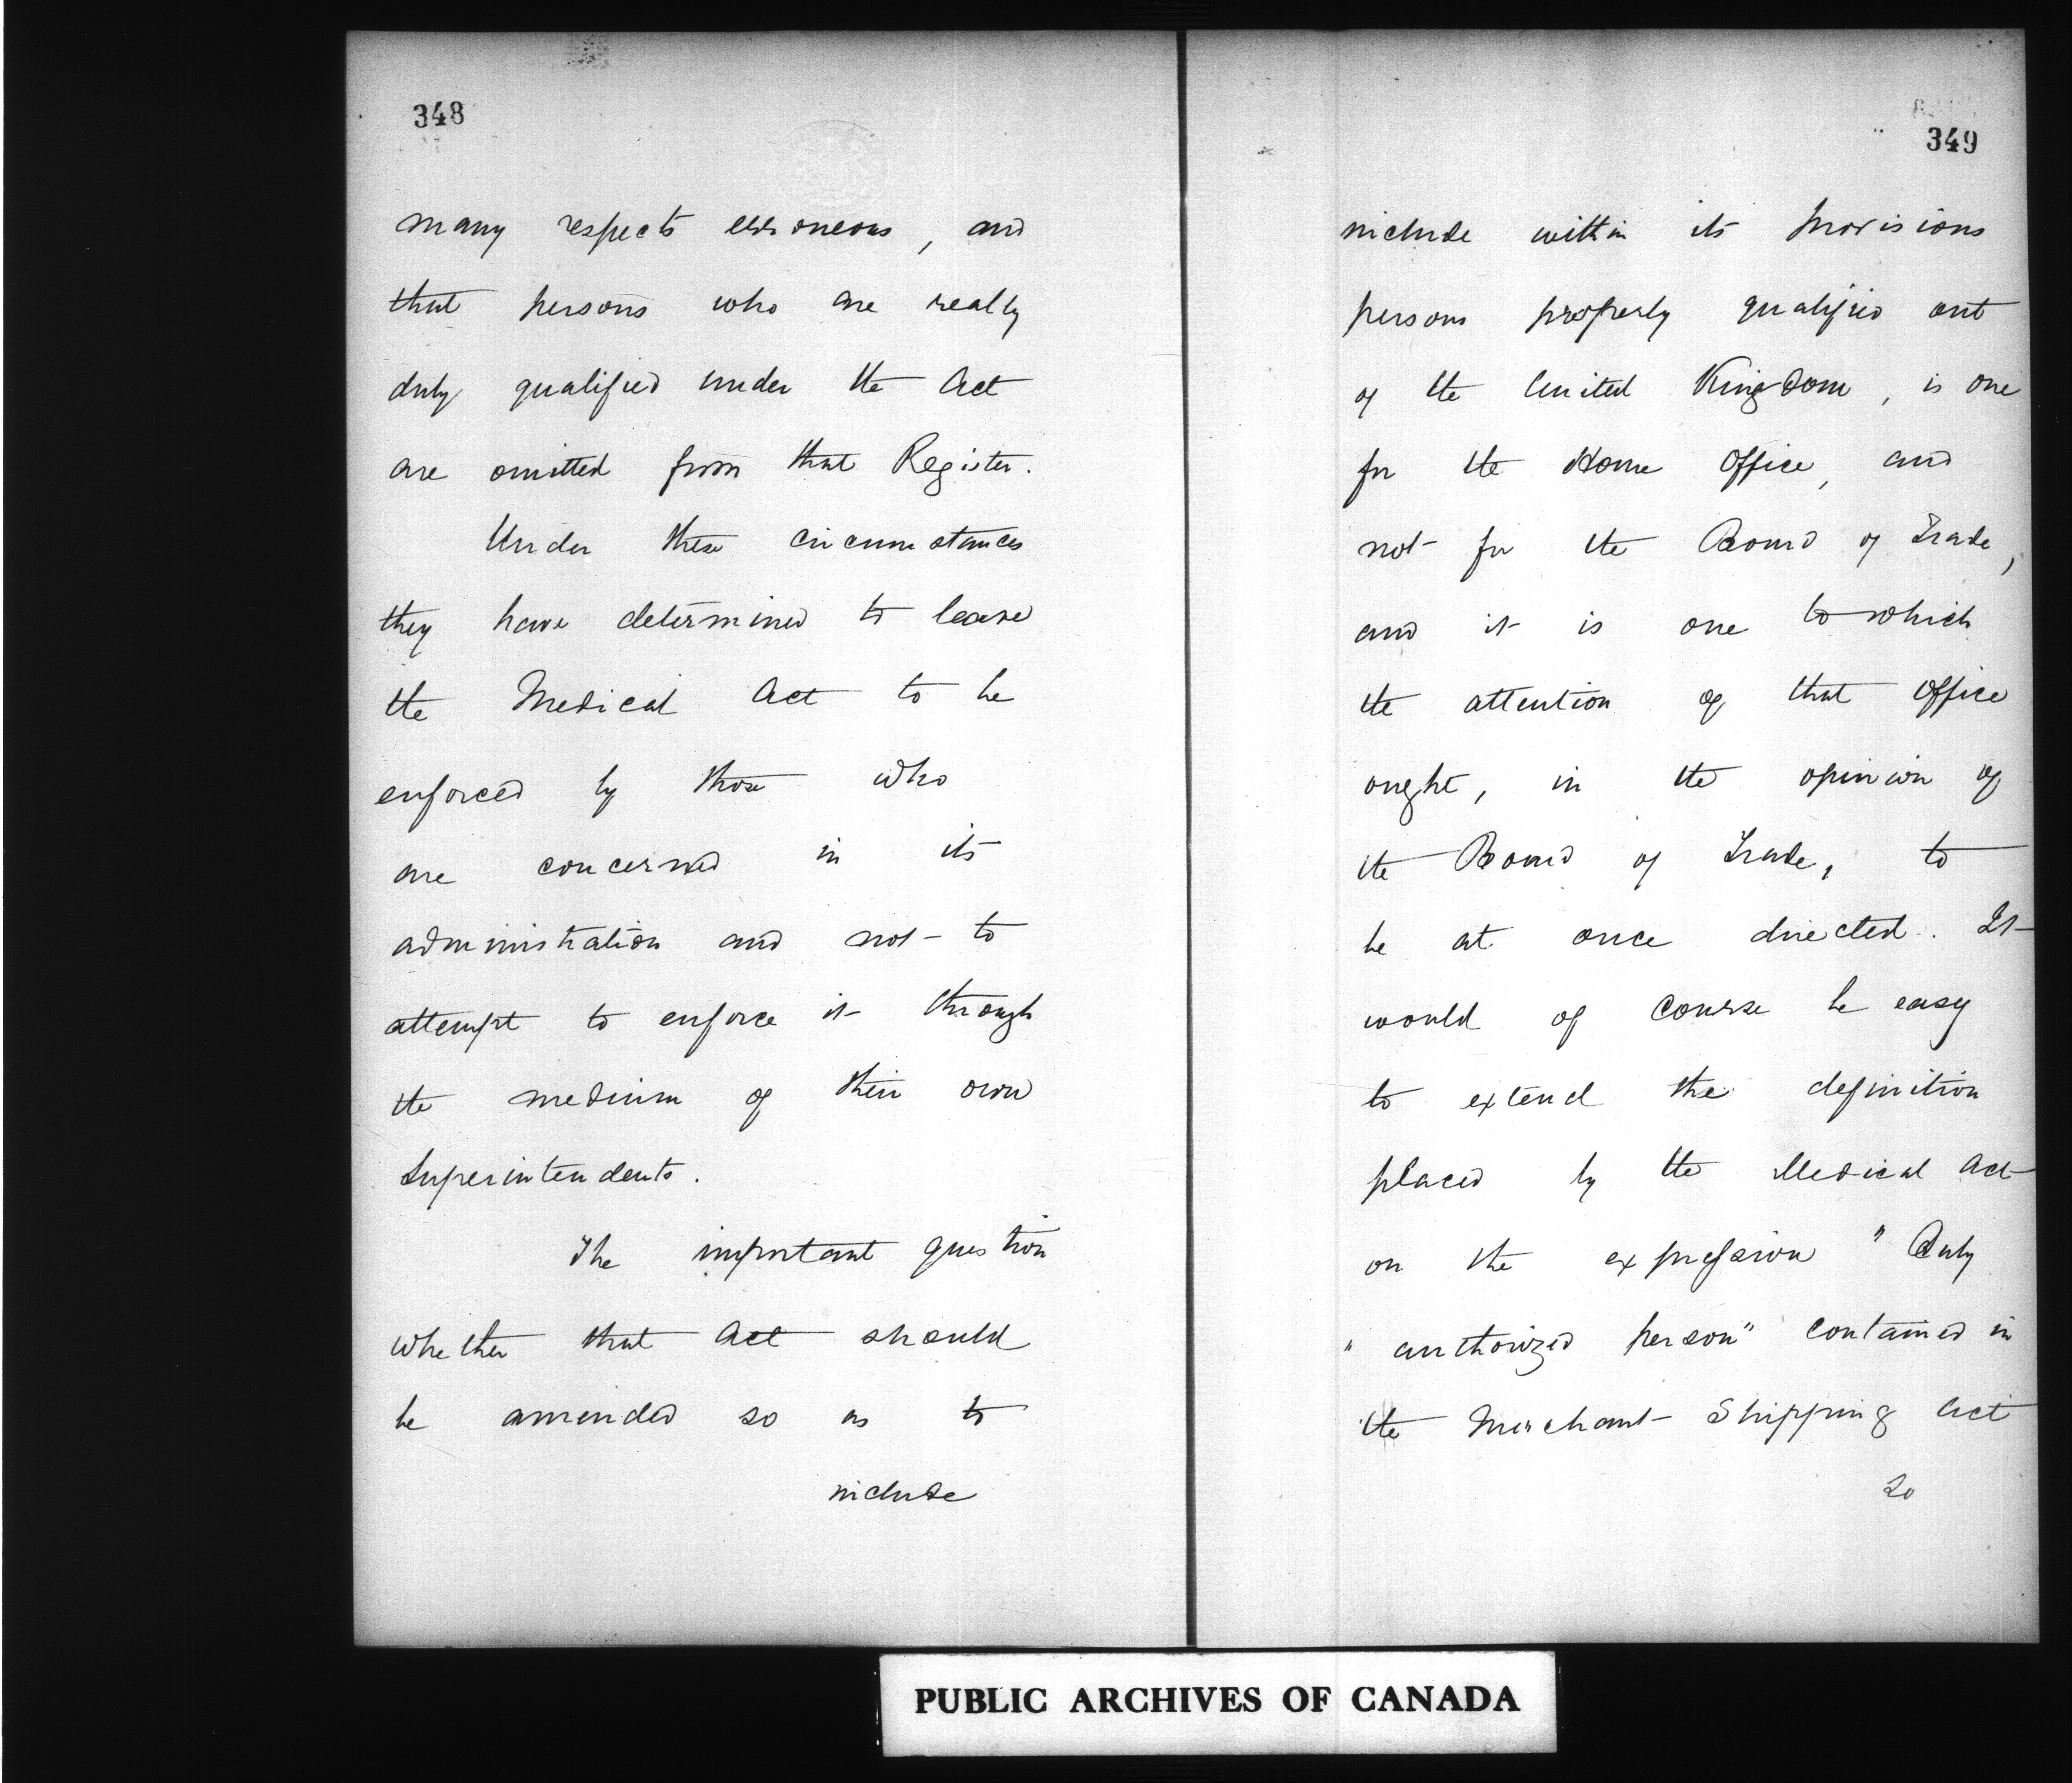 348
many respects erroneous, and
that persons who are really
duly qualified under the Act
are omitted from that Register.
Under these circumstances
they have determined to leave
the Medical Act to be
enforced by those who
are concerned in its
administration and not to
attempt to enforce it through
the medium of their own
Superintendents.
The important question
whether that Act should
be amended so as to
include
349
include within its provisions
persons properly qualified out
of the United Kingdom, is one
for the Home Office, and
not for the Board of Trade,
and it is one to which
the attention of that Office
ought, in the opinion of
the Board of Trade, to
be at once directed. It
would of course be easy
to extend the definition
placed by the Medical Act
on the expression "Duly
"authorized person" contained in
the Merchant Shipping Act
So
PUBLIC ARCHIVES OF CANADA